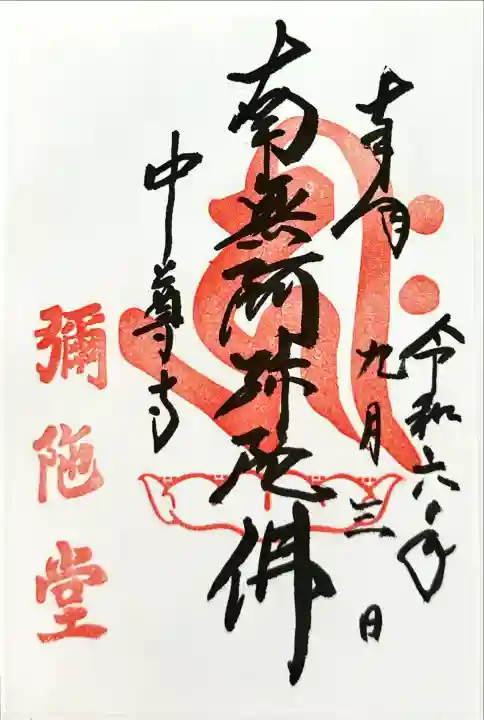 奉拝
令和六年
九月三日
南無阿弥陀佛
中尊寺
彌陁堂